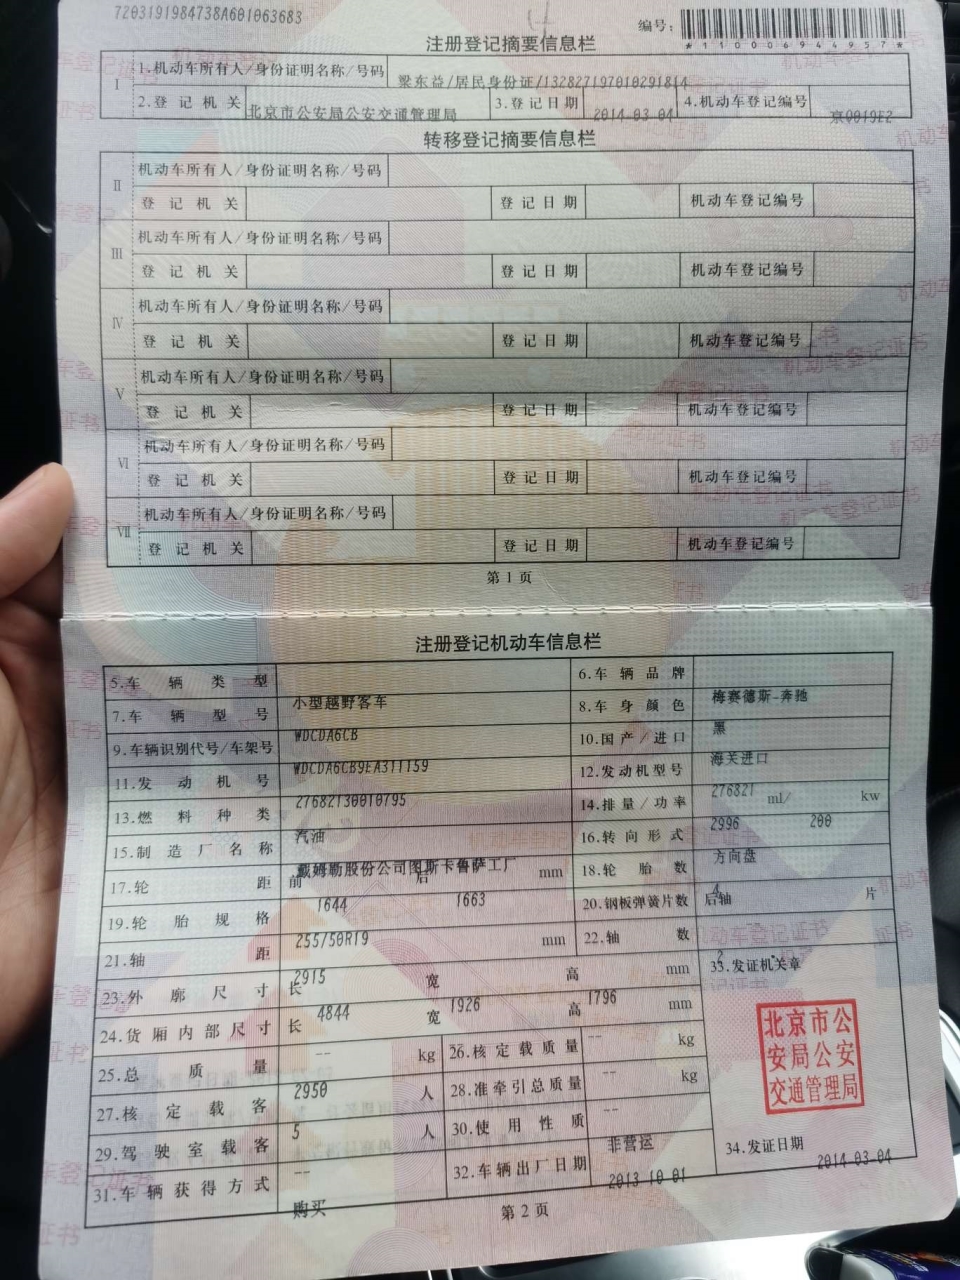 7203191984738A601063683
编号:
*110006944957*
注册登记摘要信息栏
I
1.机动车所有人/身份证明名称/号码 梁东益/居民身份证/132827197010291814
2.登记机关 北京市公安局公安交通管理局 3.登记日期 2014-03-04 4.机动车登记编号 京Q019E2
转移登记摘要信息栏
II
机动车所有人/身份证明名称/号码
登记机关 登记日期 机动车登记编号
III
机动车所有人/身份证明名称/号码
登记机关 登记日期 机动车登记编号
IV
机动车所有人/身份证明名称/号码
登记机关 登记日期 机动车登记编号
V
机动车所有人/身份证明名称/号码
登记机关 登记日期 机动车登记编号
VI
机动车所有人/身份证明名称/号码
登记机关 登记日期 机动车登记编号
VII
机动车所有人/身份证明名称/号码
登记机关 登记日期 机动车登记编号
第1页
注册登记机动车信息栏
5.车辆类型 小型越野客车 6.车辆品牌 梅赛德斯-奔驰
7.车辆型号 WDCDA6CB 8.车身颜色 黑
9.车辆识别代号/车架号 WDCDA6CB9EA311159 10.国产/进口 海关进口
11.发动机号 27682130010795 12.发动机型号 276821
13.燃料种类 汽油 14.排量/功率 2996 ml/ 200 kw
15.制造厂名称 戴姆勒股份公司图斯卡鲁萨工厂 16.转向形式 方向盘
17.轮距 前 1644 后 1663 mm 18.轮胎数 4
19.轮胎规格 255/50R19 20.钢板弹簧片数 后轴 片
21.轴距 2915 mm 22.轴数 2
23.外廓尺寸 长 4844 宽 1926 高 1796 mm
33.发证机关章
24.货厢内部尺寸 长 -- 宽 -- 高 -- mm
25.总质量 2950 kg 26.核定载质量 -- kg
27.核定载客 5 人 28.准牵引总质量 -- kg
29.驾驶室载客 -- 人 30.使用性质 非营运
31.车辆获得方式 购买 32.车辆出厂日期 2013-10-01
北京市公
安局公安
交通管理局
34.发证日期 2014-03-04
第2页